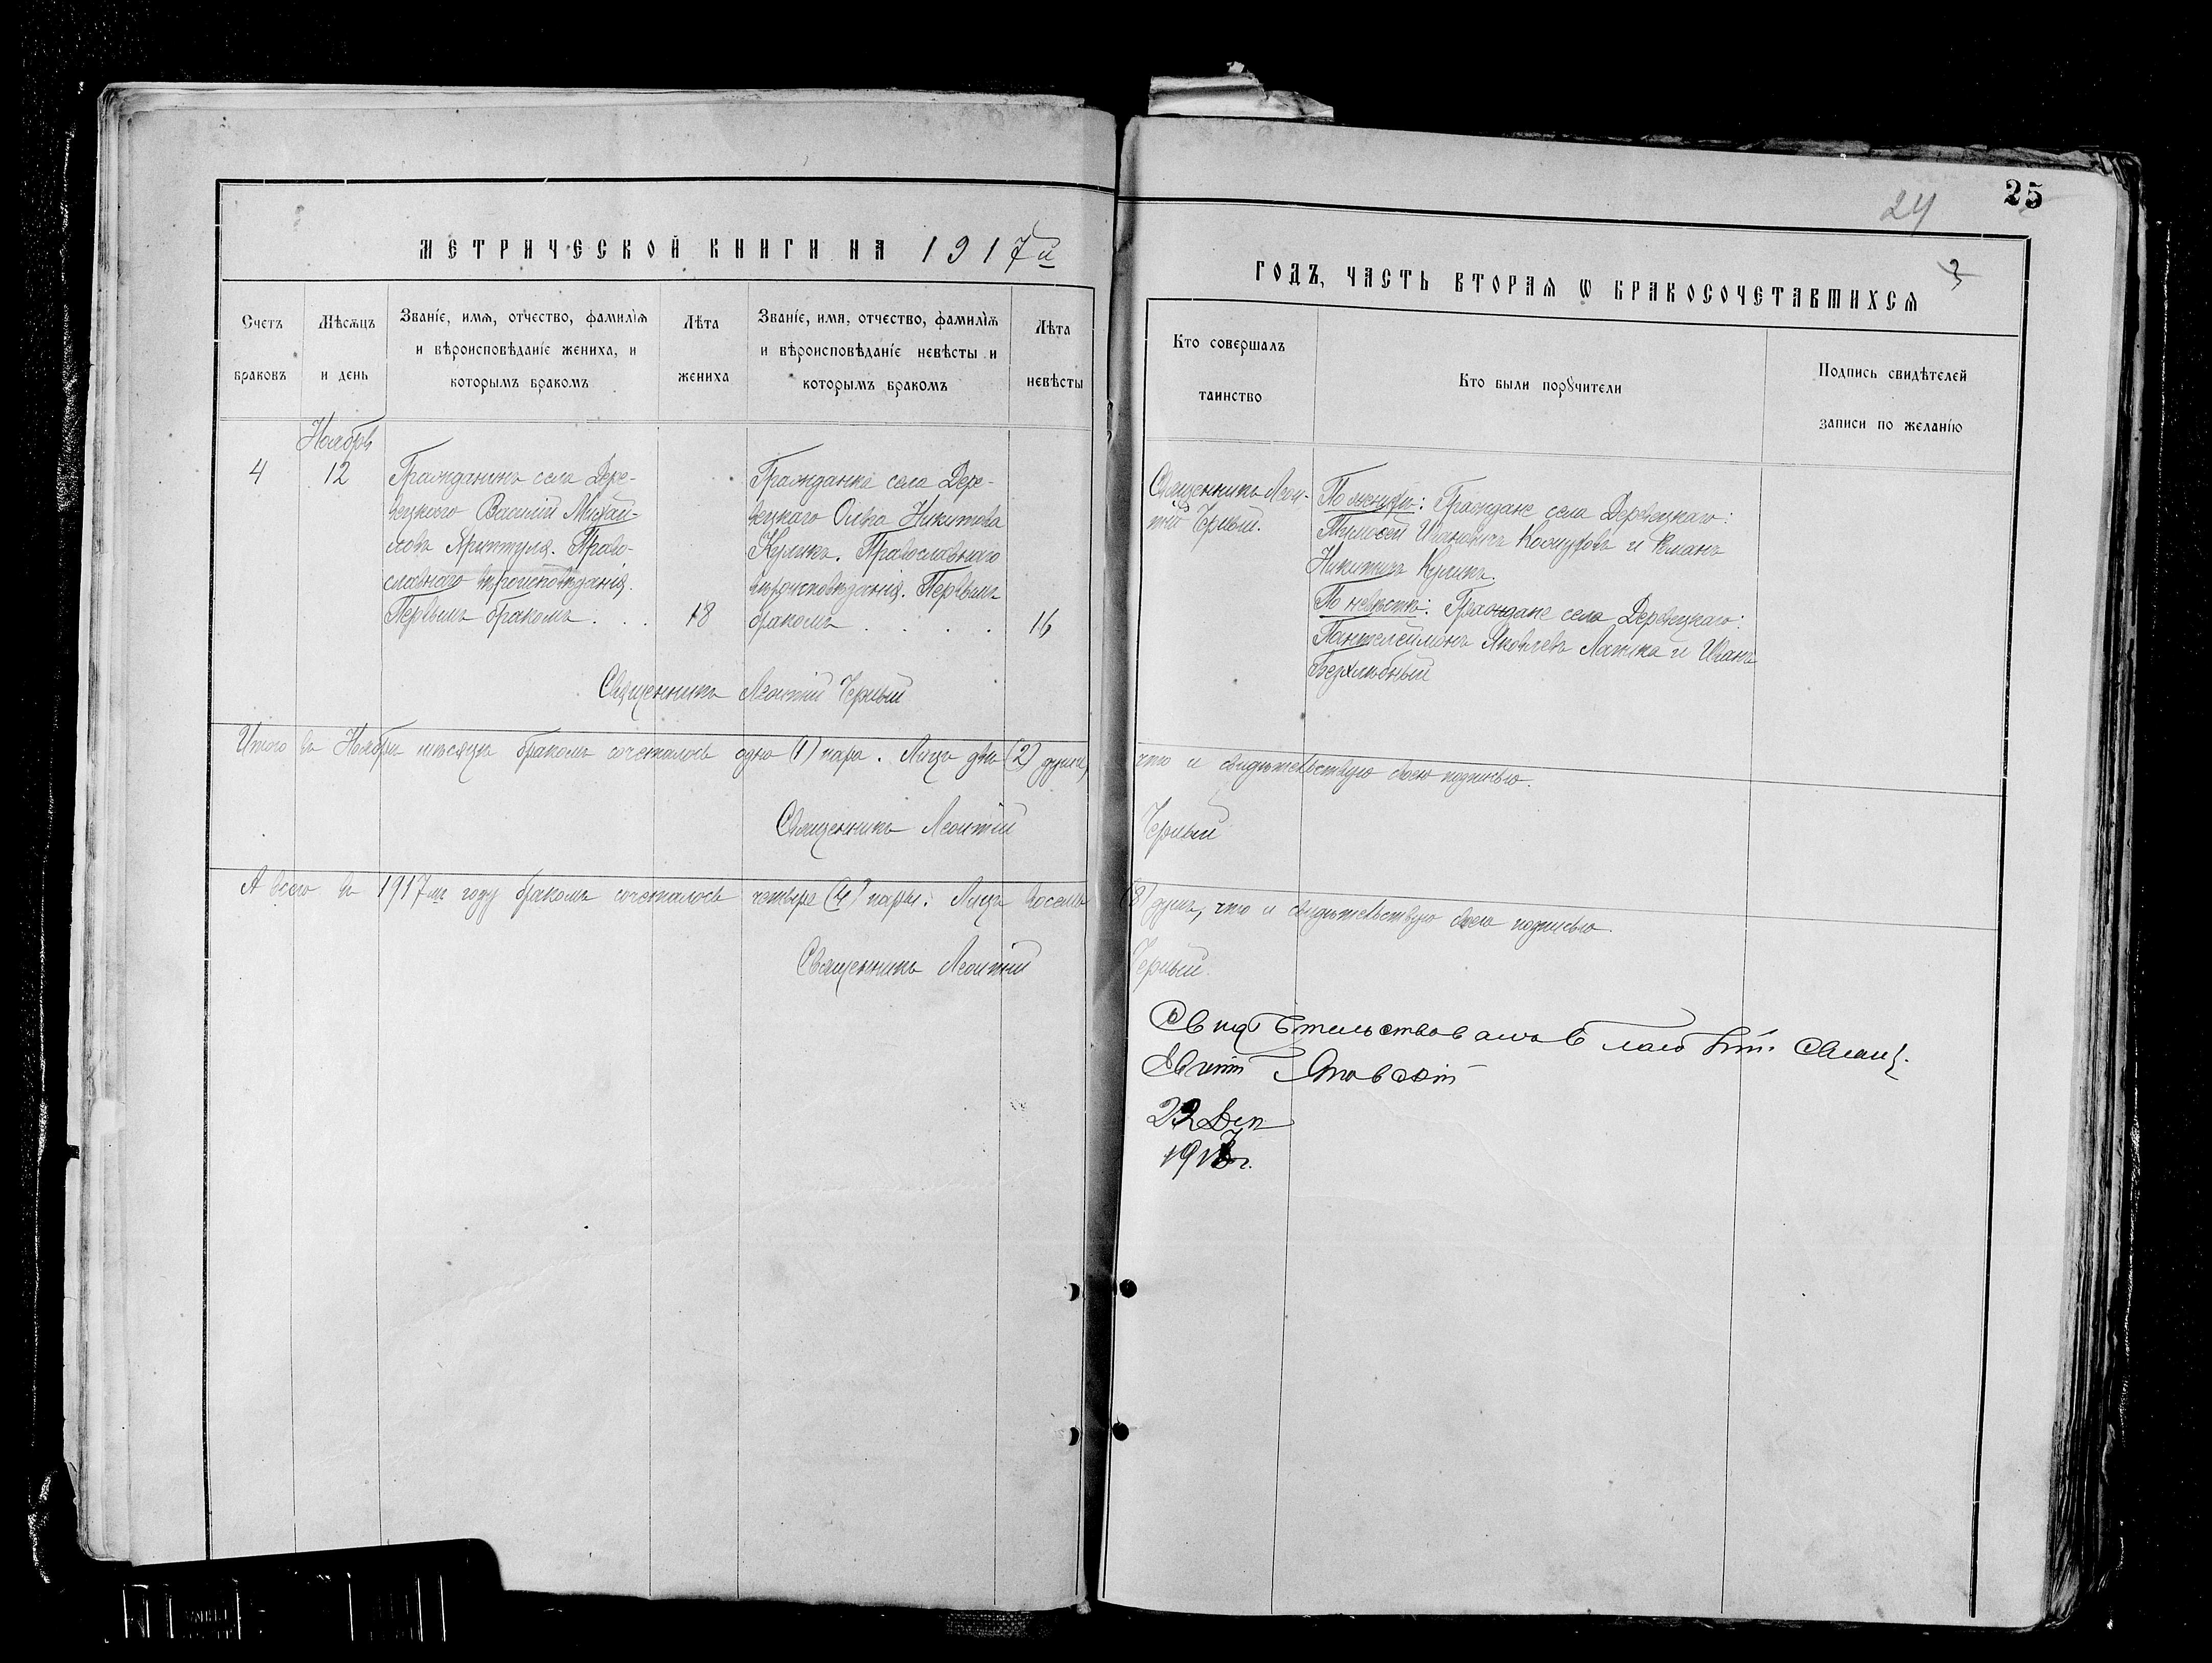 МЕТРИЧЕСКОЙ КНИГИ НА 1917й
Счетъ браковъ
Мѣсяцъ и день
Званіе, имя, отчество, фамилія и вѣроисповѣданіе жениха, и которымъ бракомъ
Лѣта жениха
Званіе, имя, отчество, фамилія и вѣроисповѣданіе невѣсты и которымъ бракомъ
Лѣта невѣсты
Ноябрь
4
12
Гражданинъ села Дере-
вецкаго Василій Михай-
ловъ Притуля. Право-
славнаго вѣроисповѣданія.
Первымъ бракомъ . . .
18
Гражданка села Дере-
вецкаго Ольга Никитова
Куликъ. Православнаго
вѣроисповѣданія. Первымъ
бракомъ . . . .
16
Священникъ Леонтій Черный
Итого въ Ноябрѣ мѣсяцѣ бракомъ сочеталось одна (1) пара. Лицъ двѣ (2) души,
Священникъ Леонтій
А всего въ 1917мъ году бракомъ сочеталось четыре (4) пары. Лицъ восемь
Священникъ Леонтій
25
24
3
ГОДЪ, ЧАСТЬ ВТОРАЯ Ѡ БРАКОСОЧЕТАВШИХСЯ
Кто совершалъ таинство
Кто были порꙋчители
Подпись свидѣтелей записи по желанію
Священникъ Леон-
тій Черный.
По женихѣ: Граждане села Деревецкаго:
Тимофей Ивановичъ и Романъ
Никитичъ Куликъ.
По невѣстѣ: Граждане села Деревецкаго:
Пантелеимонъ Яковлевъ Латка и Иванъ
Верхлѣбный
что и свидѣтельствую своею подписью.
Черный
(8) душъ, что и свидѣтельствую своею подписью.
Черный.
Свидѣтельствовалъ Свящ.
22 Дек
1917г.